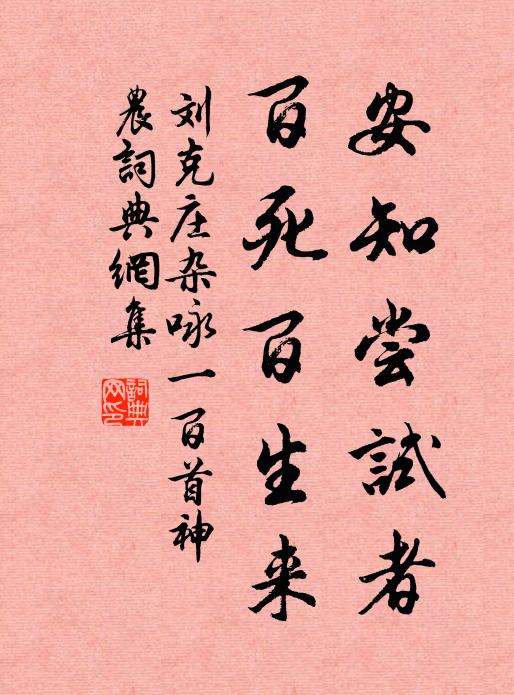 安知尝試者
百死百生来
刘克庄杂咏一百首神
農詞典網集
詞典
网印